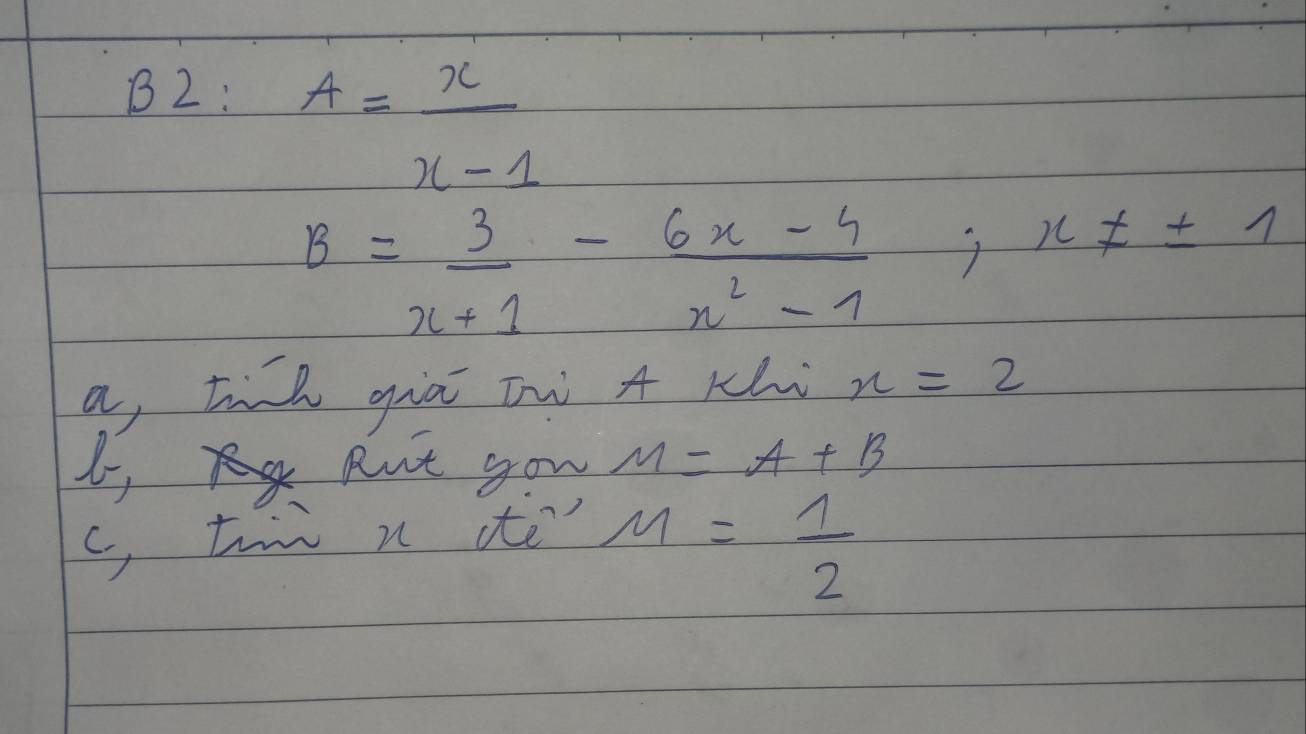 B2: A = x / x - 1
B = 3 / x + 1 - 6x - 4 / x² - 1 ; x ≠ ± 1
a, tính giá trị A khi x = 2
b, Rút gọn M = A + B
c, tìm x để M = 1 / 2